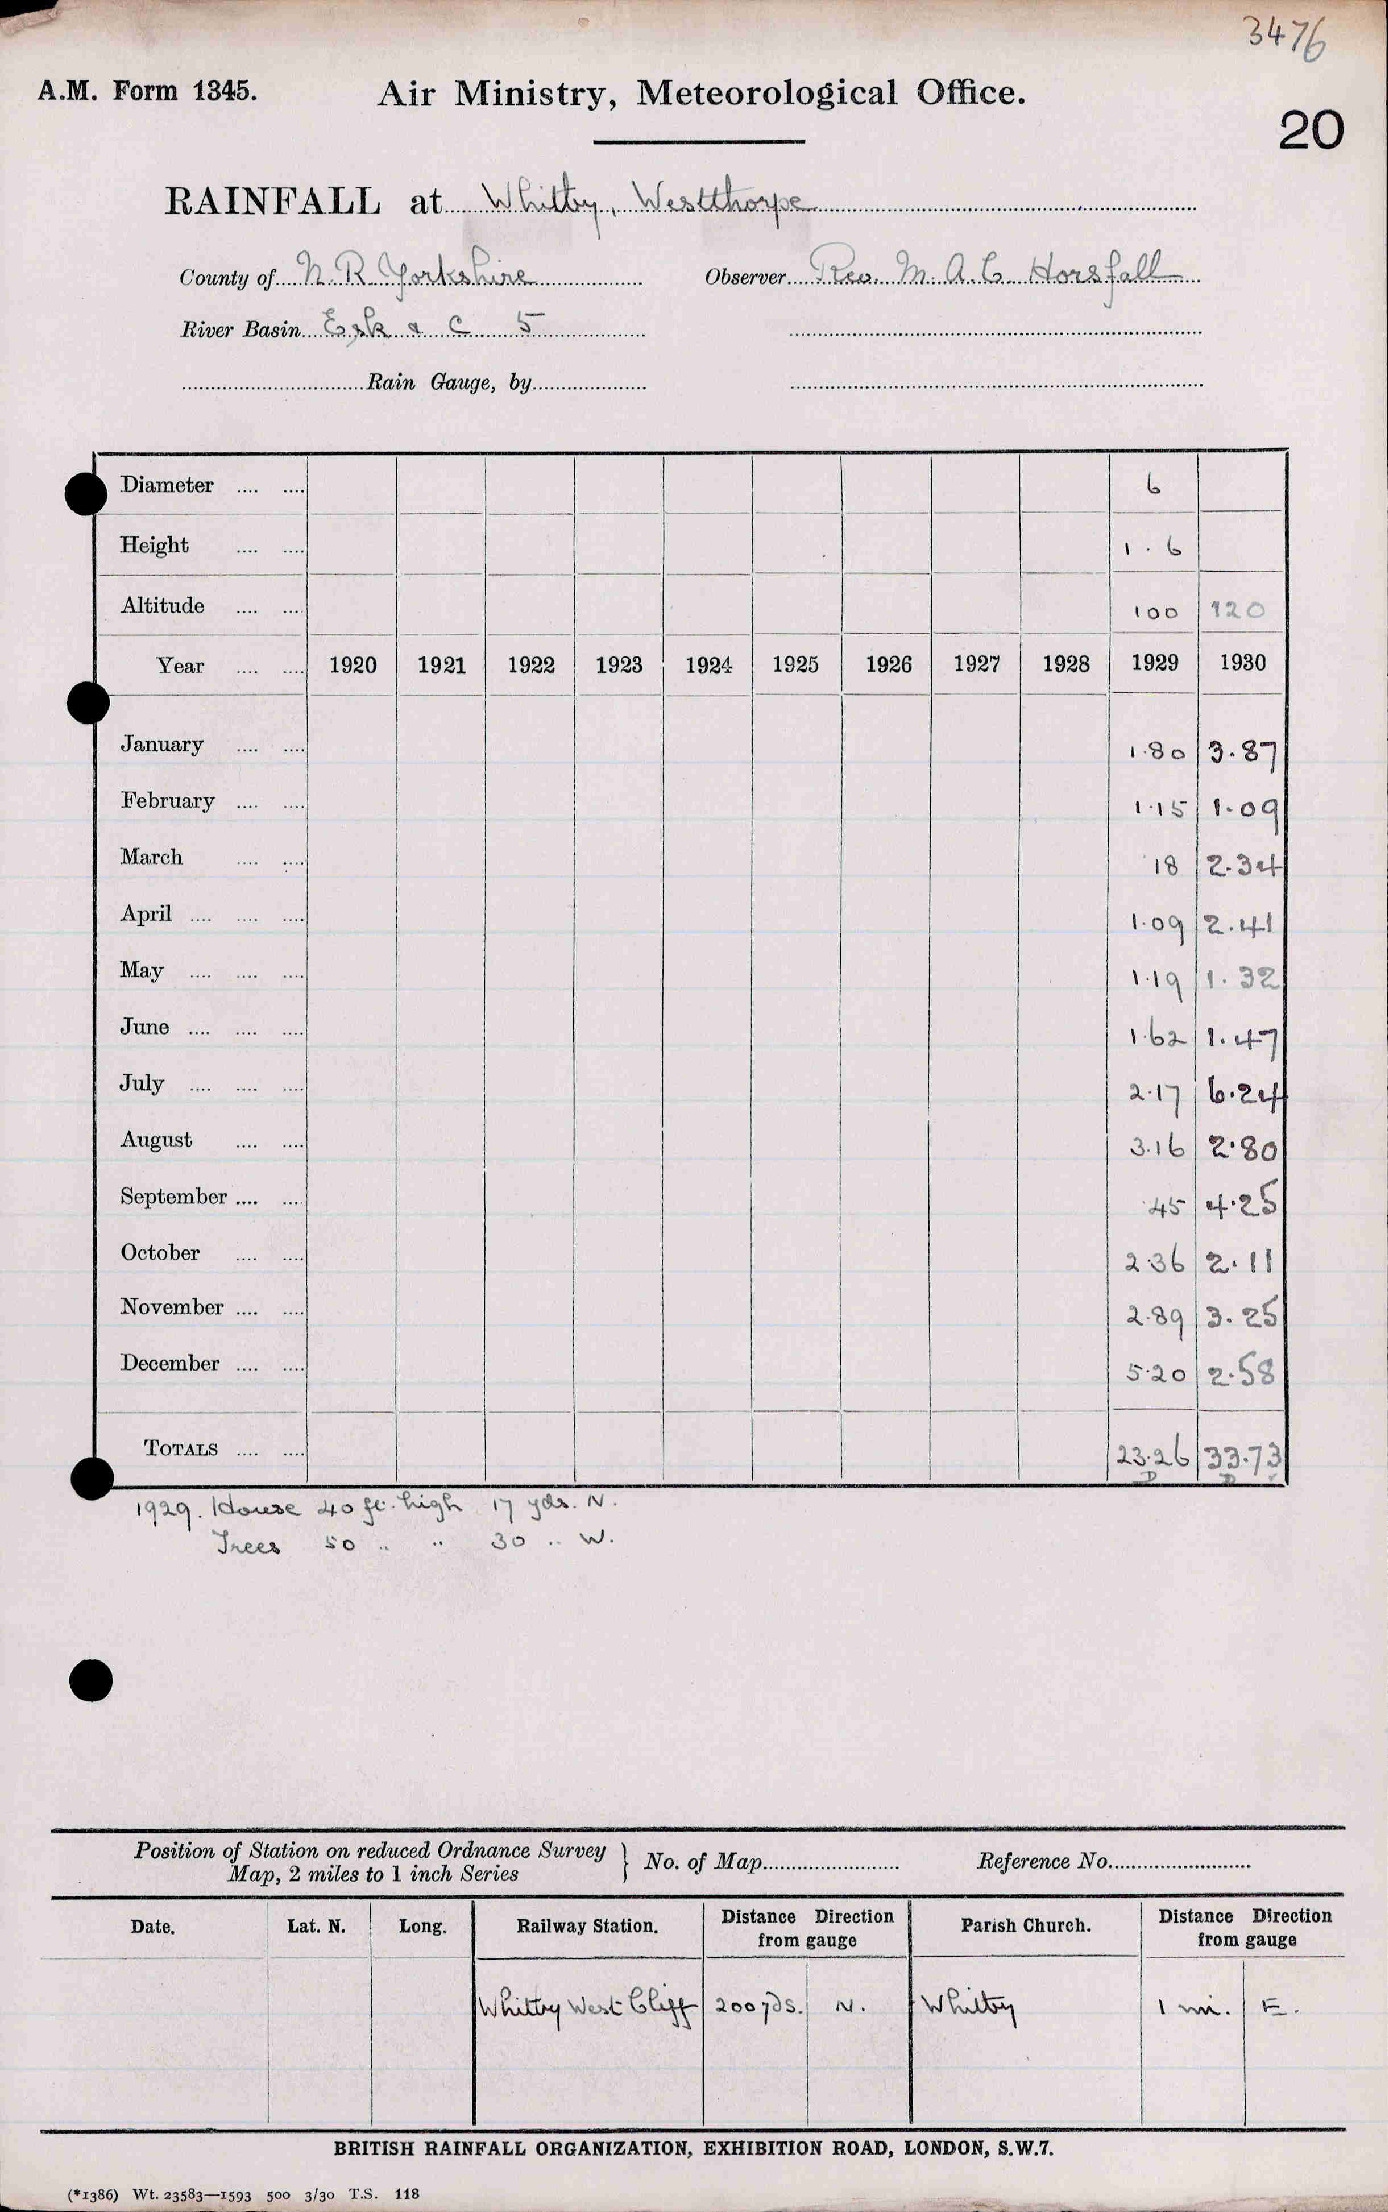 3476
A.M. Form 1345. Air Ministry, Meteorological Office.
20
RAINFALL at Whitby, Westthorpe
County of N. R. Yorkshire Observer Rev. M. A. C. Horsfall
River Basin Esk & C 5
Rain Gauge, by
Diameter .... .... 6
Height .... .... 1 . 6
Altitude .... .... 100 120
Year .... .... 1920 1921 1922 1923 1924 1925 1926 1927 1928 1929 1930
January .... .... 1.80 3.87
February .... .... 1.15 1.09
March .... .... .18 2.34
April .... .... .... 1.09 2.41
May .... .... .... 1.19 1.32
June .... .... .... 1.62 1.47
July .... .... .... 2.17 6.24
August .... .... 3.16 2.80
September .... .... .45 4.25
October .... .... 2.36 2.11
November .... .... 2.89 3.25
December .... .... 5.20 2.58
TOTALS .... .... 23.26 33.73
D D
1929. House 40 ft. high 17 yds. N.
Trees 50 " " 30 " W.
Position of Station on reduced Ordnance Survey
Map, 2 miles to 1 inch Series } No. of Map Reference No.
Date. Lat. N. Long. Railway Station. Distance Direction from gauge Parish Church. Distance Direction from gauge
Whitby West Cliff 200 yds. N. Whitby 1 mi. E.
BRITISH RAINFALL ORGANIZATION, EXHIBITION ROAD, LONDON, S.W.7.
(*1386) Wt. 23583—1593 500 3/30 T.S. 118